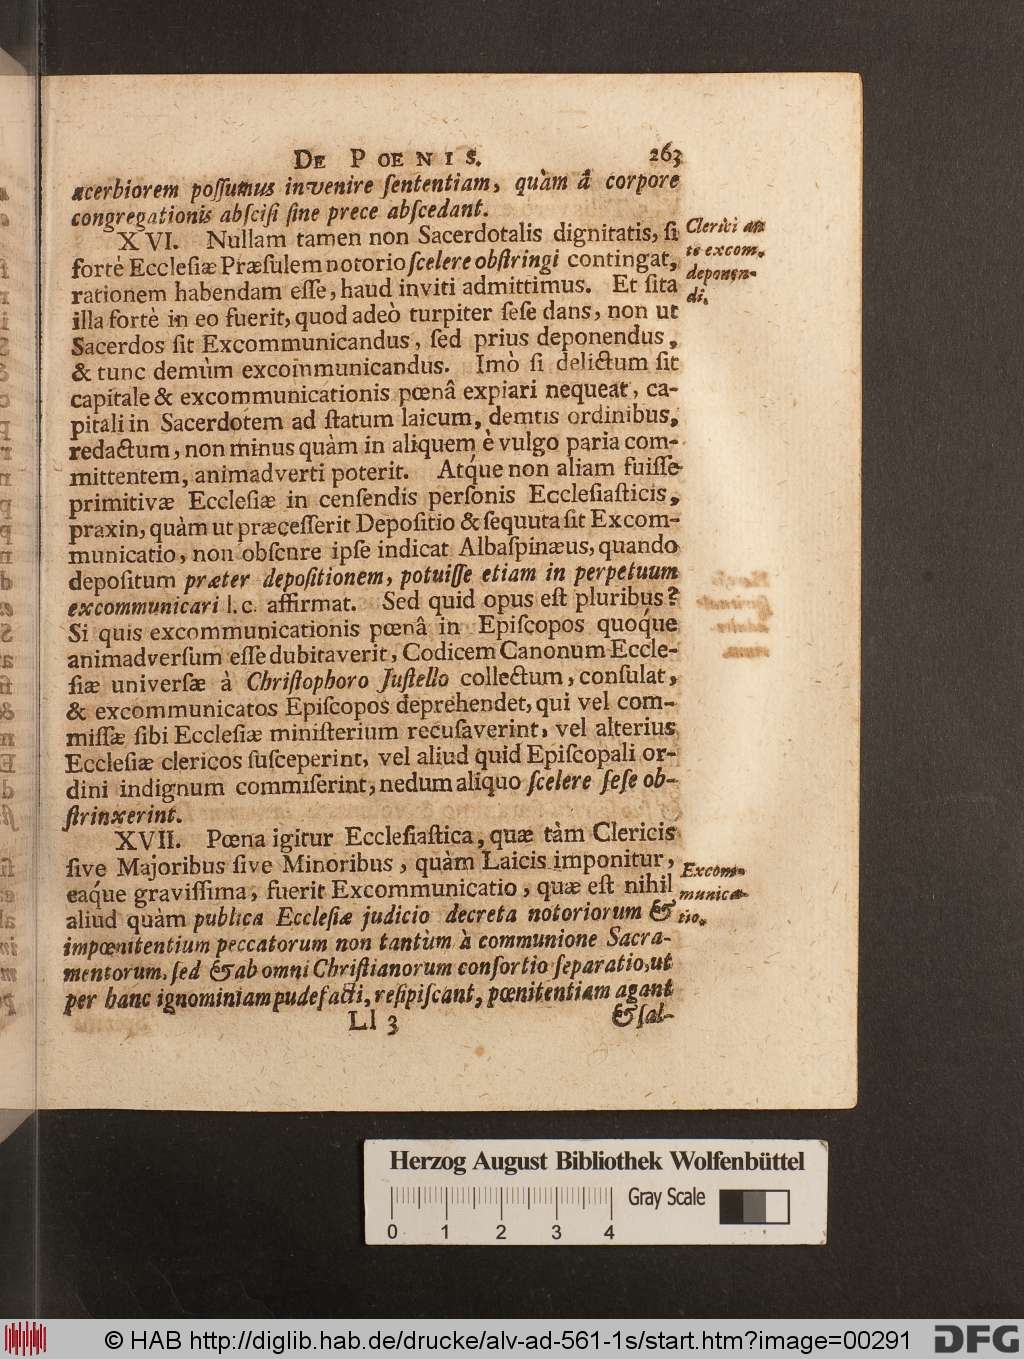 DE POENIS. 263
acerbiorem poſſumus invenire ſententiam, quàm â corpore
congregationis abſciſi ſine prece abſcedant.
XVI. Nullam tamen non Sacerdotalis dignitatis, ſi
fortè Eccleſiæ Præſulem notorio ſcelere obſtringi contingat,
rationem habendam eſſe, haud inviti admittimus. Et ſita
illa fortè in eo fuerit, quod adeò turpiter ſeſe dans, non ut
Sacerdos ſit Excommunicandus, ſed prius deponendus,
& tunc demùm excommunicandus. Imò ſi delictum ſit
capitale & excommunicationis pœnâ expiari nequeat, ca-
pitali in Sacerdotem ad ſtatum laicum, demtis ordinibus,
redactum, non minus quàm in aliquem è vulgo paria com-
mittentem, animadverti poterit. Atq́ue non aliam fuiſſe
primitivæ Eccleſiæ in cenſendis perſonis Eccleſiaſticis,
praxin, quàm ut præceſſerit Depoſitio & ſequuta ſit Excom-
municatio, non obſcure ipſe indicat Albaſpinæus, quando
depoſitum præter depoſitionem, potuiſſe etiam in perpetuum
excommunicari l. c. affirmat. Sed quid opus eſt pluribus?
Si quis excommunicationis pœnâ in Epiſcopos quoq́ue
animadverſum eſſe dubitaverit, Codicem Canonum Eccle-
ſiæ univerſæ à Chriſtophoro Juſtello collectum, conſulat,
& excommunicatos Epiſcopos deprehendet, qui vel com-
miſſæ ſibi Eccleſiæ miniſterium recuſaverint, vel alterius
Eccleſiæ clericos ſuſceperint, vel aliud quid Epiſcopali or-
dini indignum commiſerint, nedum aliquo ſcelere ſeſe ob-
ſtrinxerint.
XVII. Pœna igitur Eccleſiaſtica, quæ tàm Clericis
ſive Majoribus ſive Minoribus, quàm Laicis imponitur,
eaq́ue graviſſima, fuerit Excommunicatio, quæ eſt nihil
aliud quàm publica Eccleſiæ judicio decreta notoriorum &
impœnitentium peccatorum non tantùm à communione Sacra-
mentorum, ſed & ab omni Chriſtianorum conſortio ſeparatio, ut
per hanc ignominiam pudefacti, reſipiſcant, pœnitentiam agant
Ll 3 & ſal-
Clerici an
te excom.
deponen-
di.
Excom-
munica-
tio.
Herzog August Bibliothek Wolfenbüttel
Gray Scale
0 1 2 3 4
© HAB http://diglib.hab.de/drucke/alv-ad-561-1s/start.htm?image=00291
DFG